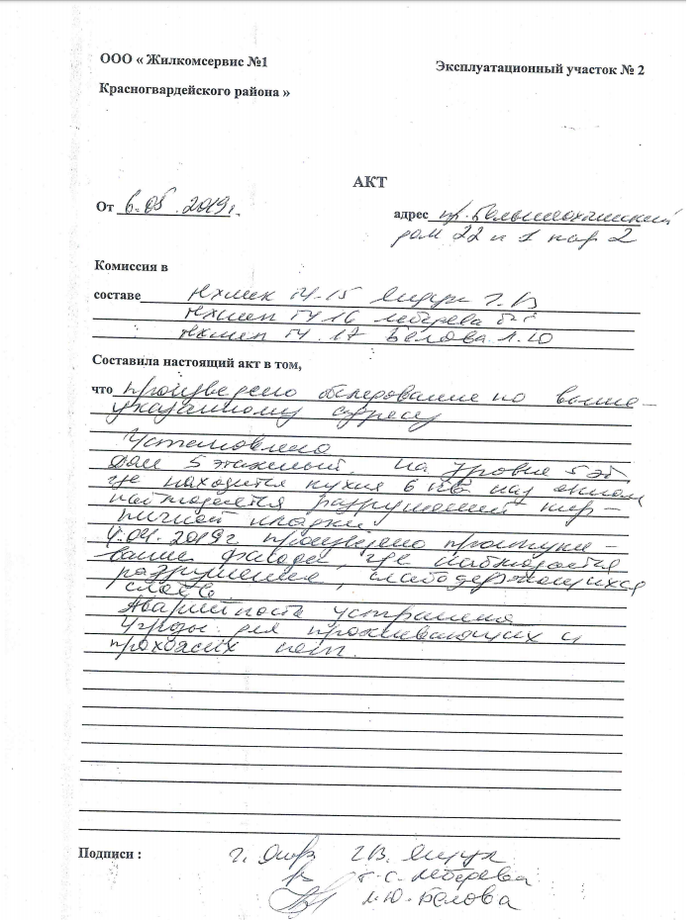 ООО « Жилкомсервис №1
Эксплуатационный участок № 2
Красногвардейского района »
АКТ
От 6.05.2019г.
адрес пр. Большеохтинский
дом 22 к 1 пар 2
Комиссия в
составе Техник ТУ-15 Г.В
Техник ТУ 16
Техник ТУ. 17 Белова Л.Ю
Составила настоящий акт в том,
что произведено обследование по выше-
указанному адресу
Установлено
Дом 5 этажный. На уровне 5 эт
где находится кухня 6 кв над окном
наблюдается разрушений кир-
пичной кладки
4.04.2019г произведено простуки-
вание фасада, где наблюдается
разрушения, слабодержащихся
слоев.
Аварийность устранена
Угрозы для проживающих и
прохожих нет.
Подписи :
Г.В.
Т.С.
Л.Ю. Белова